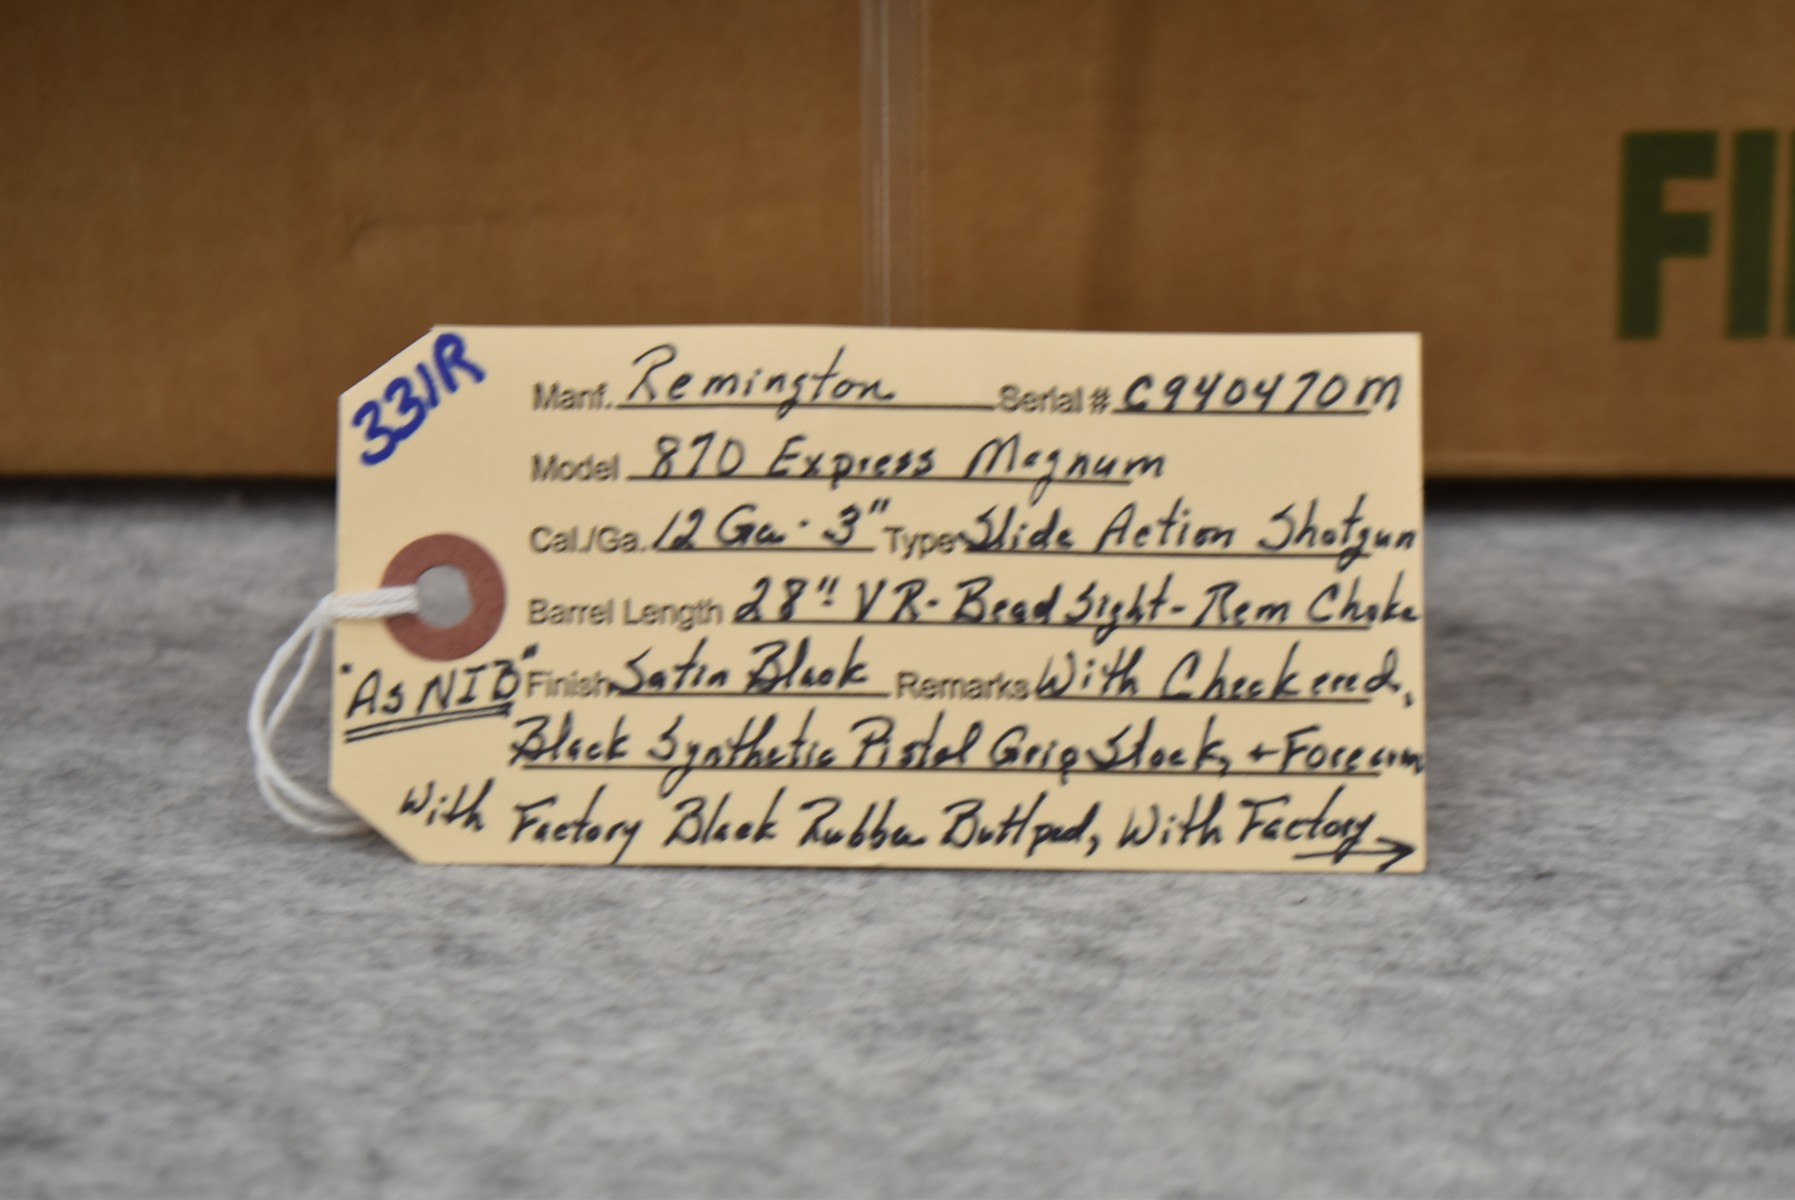 FI
331R
Manf. Remington Serial # C940470M
Model 870 Express Magnum
Cal./Ga. 12 Ga - 3" Type Slide Action Shotgun
Barrel Length 28" VR - Bead Sight - Rem Choke
"As NIB" Finish Satin Black Remarks With Checkered,
Black Synthetic Pistol Grip Stock, + Forearm
With Factory Black Rubber Buttpad, With Factory →